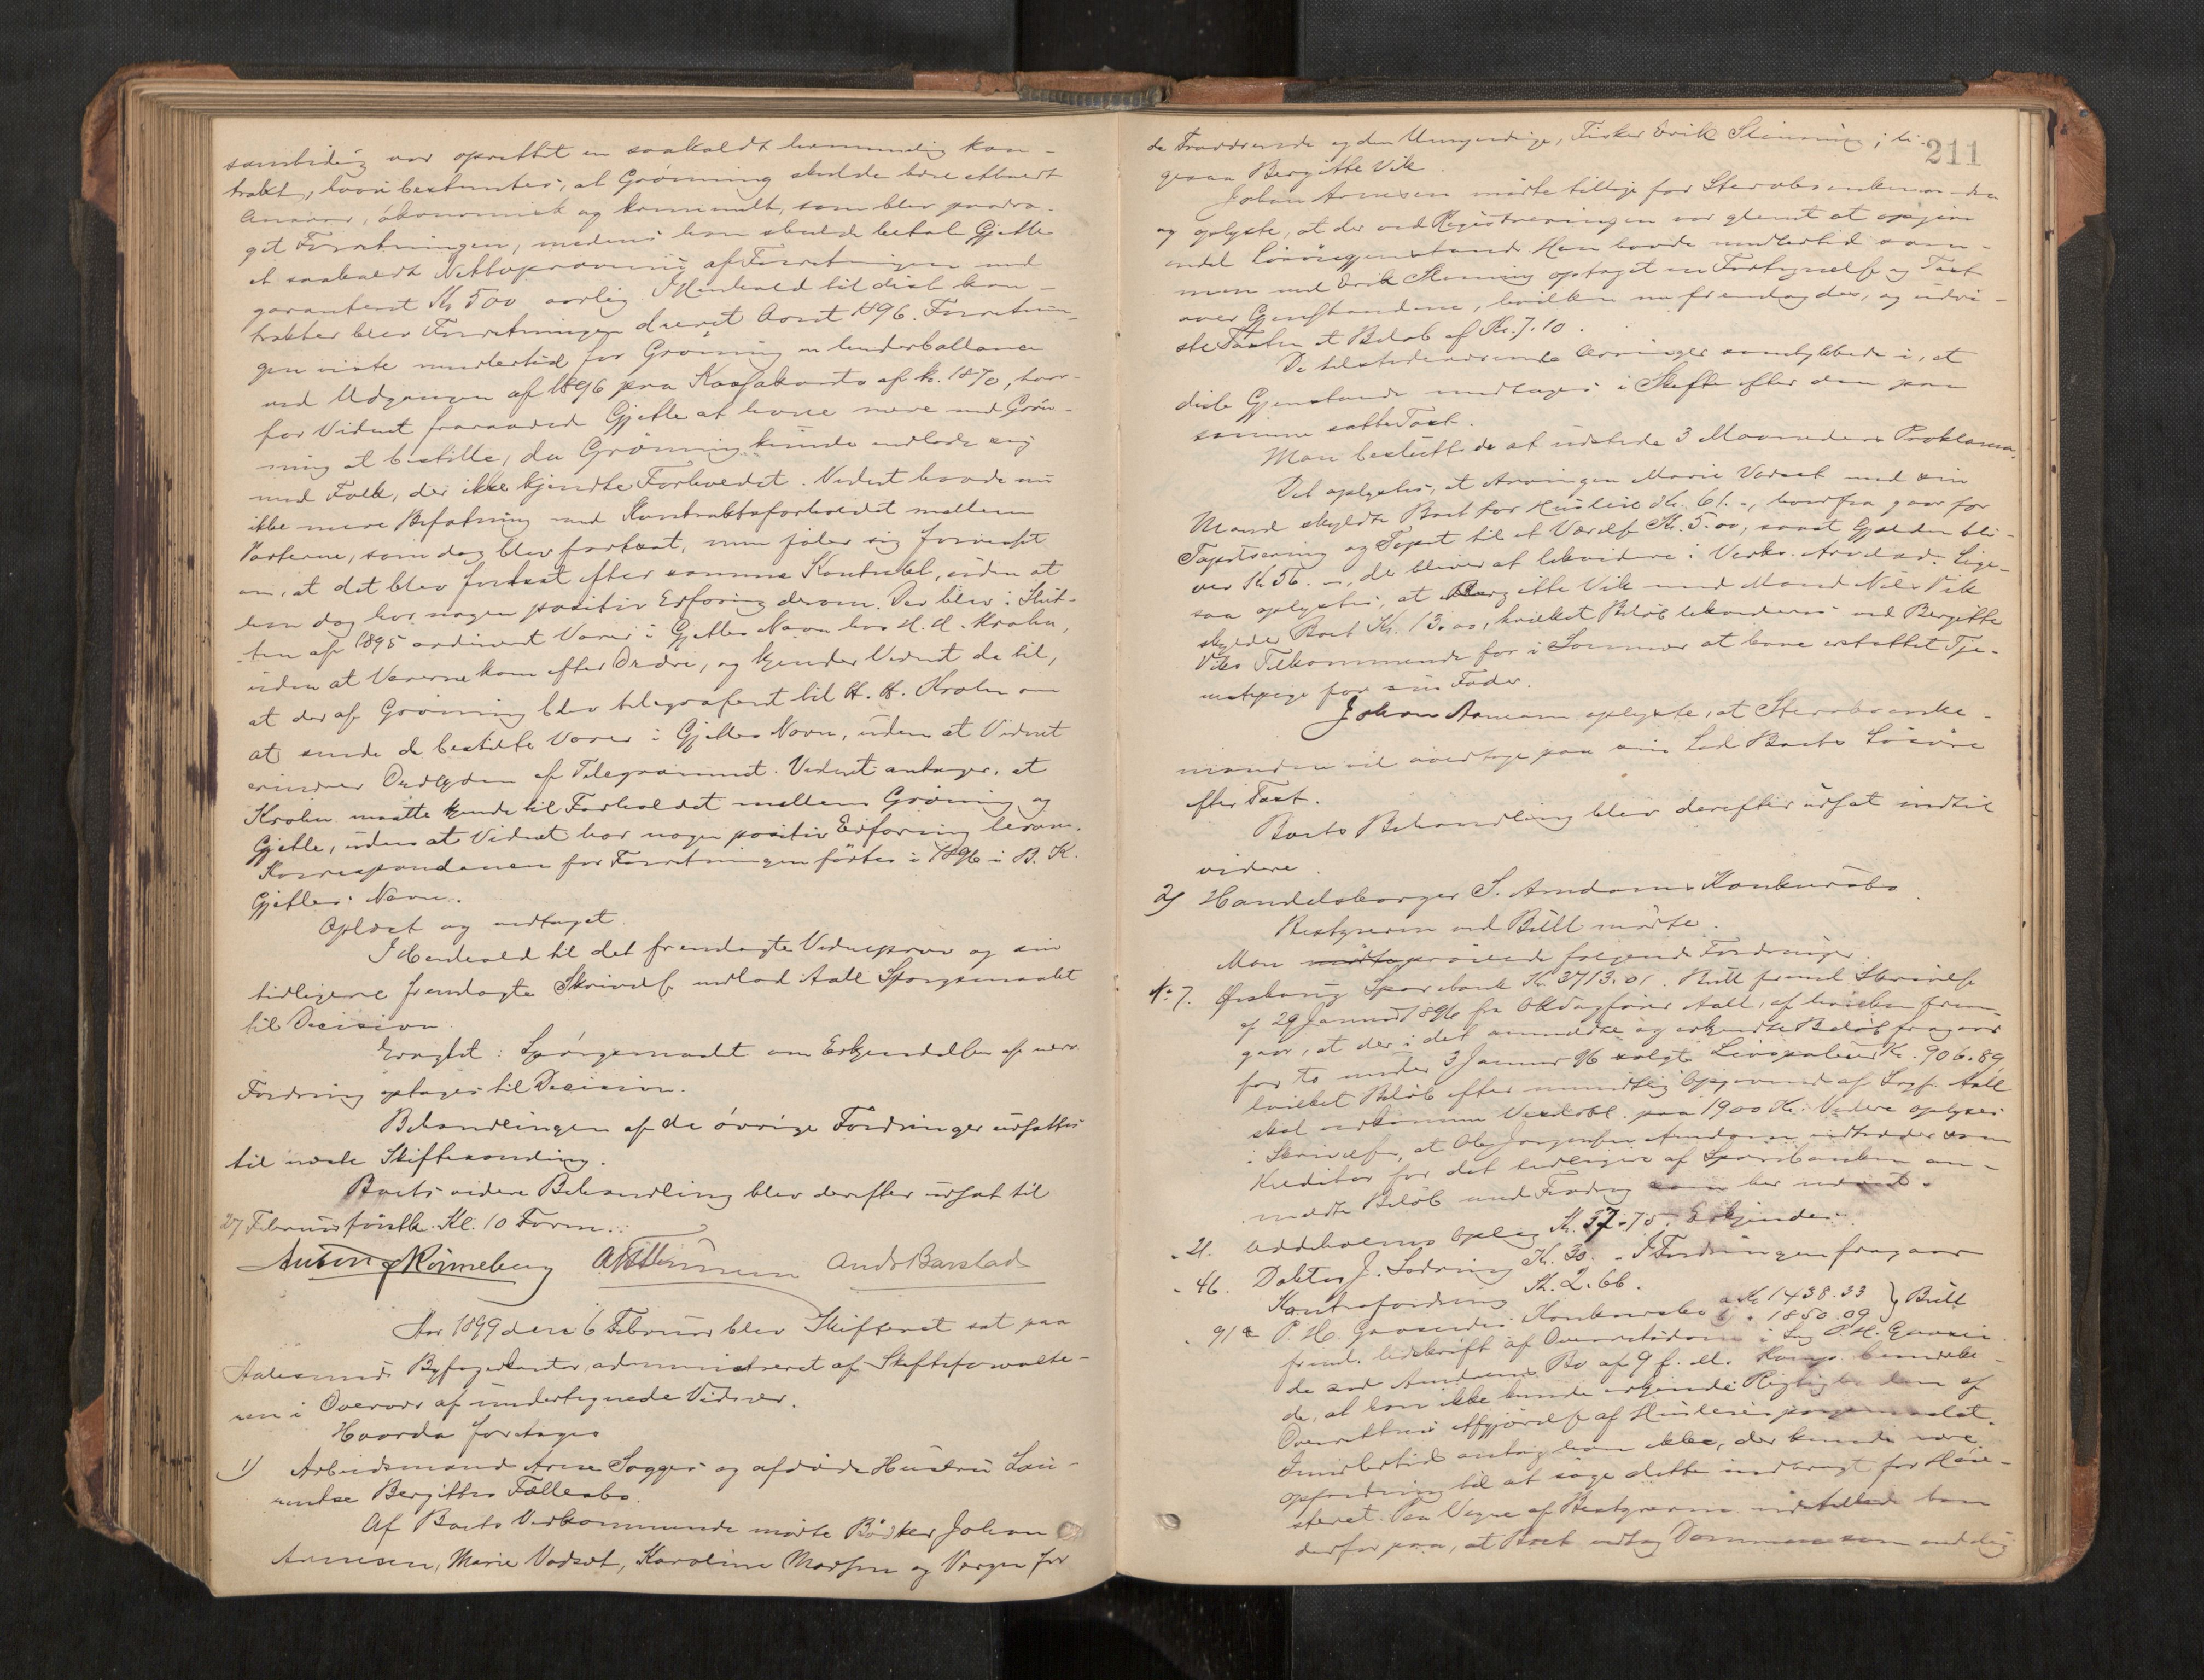 samtidig var oprettet en saakaldt hemmelig kon-
trakt, hvori bestemtes, at Grønning skulde bære ethvert
Ansvar, økonomisk og kommercielt, som blev paadra-
get Forretningen, medens han skulde betale Gjetle
et saakaldt Nettoprovenu af Forretningen med
garanteret Kr 500 aarlig. I Henhold til disse kon-
trakter blev Forretningen drevet Aaret 1896. Forretnin-
gen viste imidlertid for Grønning en underballance
ved Udgangen af 1896 paa Kassakonto af kr. 1870, hvor-
for Vidnet fraraadede Gjetle at have mere med Grøn-
ning at bestille, da Grønning kunde indlade sig
med Folk, der ikke kjendte Forholdet. Vidnet havde nu
ikke mere Befatning med Kontraktsforholdet mellem
Parterne, som dog blev fortsat, men føler sig forvisset
om, at det blev fortsat efter samme Kontrakt, uden at
han dog har nogen positiv Erfaring derom. Der blev i Slut-
ten af 1895 ordineret Varer i Gjetles Navn hos H. H. Krohn,
uden at Varerne kom efter Ordre, og kjender Vidnet da til,
at der af Grønning blev telegraferet til H. H. Krohn om
at sende de bestilte Varer i Gjetles Navn, uden at Vidnet
erindrer Ordlyden af Telegrammet. Vidnet antager, at
Krohn maatte kjende til Forholdet mellem Grønning og
Gjetle, uden at Vidnet har nogen positiv Erfaring herom.
Korrespondancen for Forretningen førtes i 1896 i B. K.
Gjetles Navn.
Oplæst og vedtaget
I Henhold til det fremlagte Vidneprov og sin
tidligere fremlagte Skrivelse indlod Aall Spørgsmaalet
til Decision.
Eragtet: Spørgsmaalet om Erkjendelse af nævn.
Fordring optages til Decision.
Behandlingen af de øvrige Fordringer udsattes
til næste Skiftesamling.
Boets videre Behandling blev derefter udsat til
27 Februar førstk. Kl. 10 Form.
Anton Rønneberg Andr Barstad
Aar 1899 den 6 Februar blev Skifteret sat paa
Aalesunds Byfogedkontor, administreret af Skifteforvalte-
ren i Overvær af undertegnede Vidner.
Hvorda foretoges
1) Arbeidsmand Arne Sogges og afdøde Hustru Lau-
rentse Bergittes Fællesbo.
Af Boets Vedkommende mødte Bødker Johan
Arnesen, Marie Vadset, Karoline Madsen og Værgen for
211
de Fraværende og den Umyndige, Fisker Erik Slinning; li-
gesaa Bergitte Vik.
Johan Arnesen mødte tillige for Sterbsenkemanden
og oplyste, at der ved Registreringen var glemt at opgive
endel Løsøregjenstande. Han havde imidlertid sam-
men med Erik Slinning optaget en Fortegnelse og Taxt
over Gjenstandene, hvilken nu fremlagdes, og udvi-
ste Taxten et Beløb af Kr. 7.10.
De tilstedeværende Arvinger samtykkede i, at
disse Gjenstande medtages i Skifte efter den paa
samme satte Taxt.
Man besluttede at udstede 3 Maaneders Proklama.
Det oplystes, at Arvingen Marie Vadset med sin
Mand skyldte Boet for Husleie Kr. 61.-, hvorfra gaar for
Tapetsering og Tapet til et Værdi af Kr. 5.00, saaat Gjælden bli-
ver Kr. 56.-, der bliver at likvidere i Vedks. Arvelod. Lige-
saa oplystes, at Bergitte Vik med Mand Nils Vik
skylder Boet Kr. 13.00, hvilket Beløb likvideres ved Bergitte
Viks Tilkommende for i Sommer at have erstattet Tje-
nestepige for sin Fader.
Johan Arnesen oplyste, at Sterbsenke-
manden vil overtage paa sin Lod Boets Løsøre
efter Taxt.
Boets Behandling blev derefter udsat indtil
videre.
2) Handelsborger S. Amdams Konkursbo.
Bestyreren ved Bull mødte.
Man mødte prøvede følgende Fordringer.
No 7. Ørskoug Sparebank Kr. 3713.01. Bull fremla Skrivelse
af 29 Januar 1896 fra Overretssagfører Aall, af hvilken frem-
gaar, at der i det anmeldte og erkjendte Beløb fragaar
for to under 3 Januar 96 solgte Livspolicer Kr. 906.89
hvilket Beløb efter mundtlig Opgivende af Sagf. Aall
skal vedkomme Vexelobl. paa 1900 Kr. Videre oplyses
i Skrivelsen, at Ole Jørgensen Amdam indtræder som
Kreditor for det tidligere af Sparebanken an-
meldte Beløb med Fradrag som her nævnt.
" 21. Uddeholms Oplag Kr. 37.75. Erkjendes.
" 46. Doktor J. Kr. 30.- I Fordringen fragaar
Kontrafordring Kr. 2.66.
" 91 P. H. Gaaseides Konkursbo a Kr 1438.33 b " 1850.09 } Bull
freml. Udskrift af Overretsdom i Sag P. H. Gaaseides
Bo mod Amdams Bo af 9 f. M. Komp. bemærke-
de, at han ikke kunde erkjende Rigtigheden af
Overrettens Afgjørelse af Husleiespørgsmaalet.
Imidlertid antog han ikke, der kunde være
opfordring til at søge dette indbragt for Høie-
steret. Paa Vegne af Bestyreren indstillede han
derfor paa, at Boet vedtog Dommen som endelig